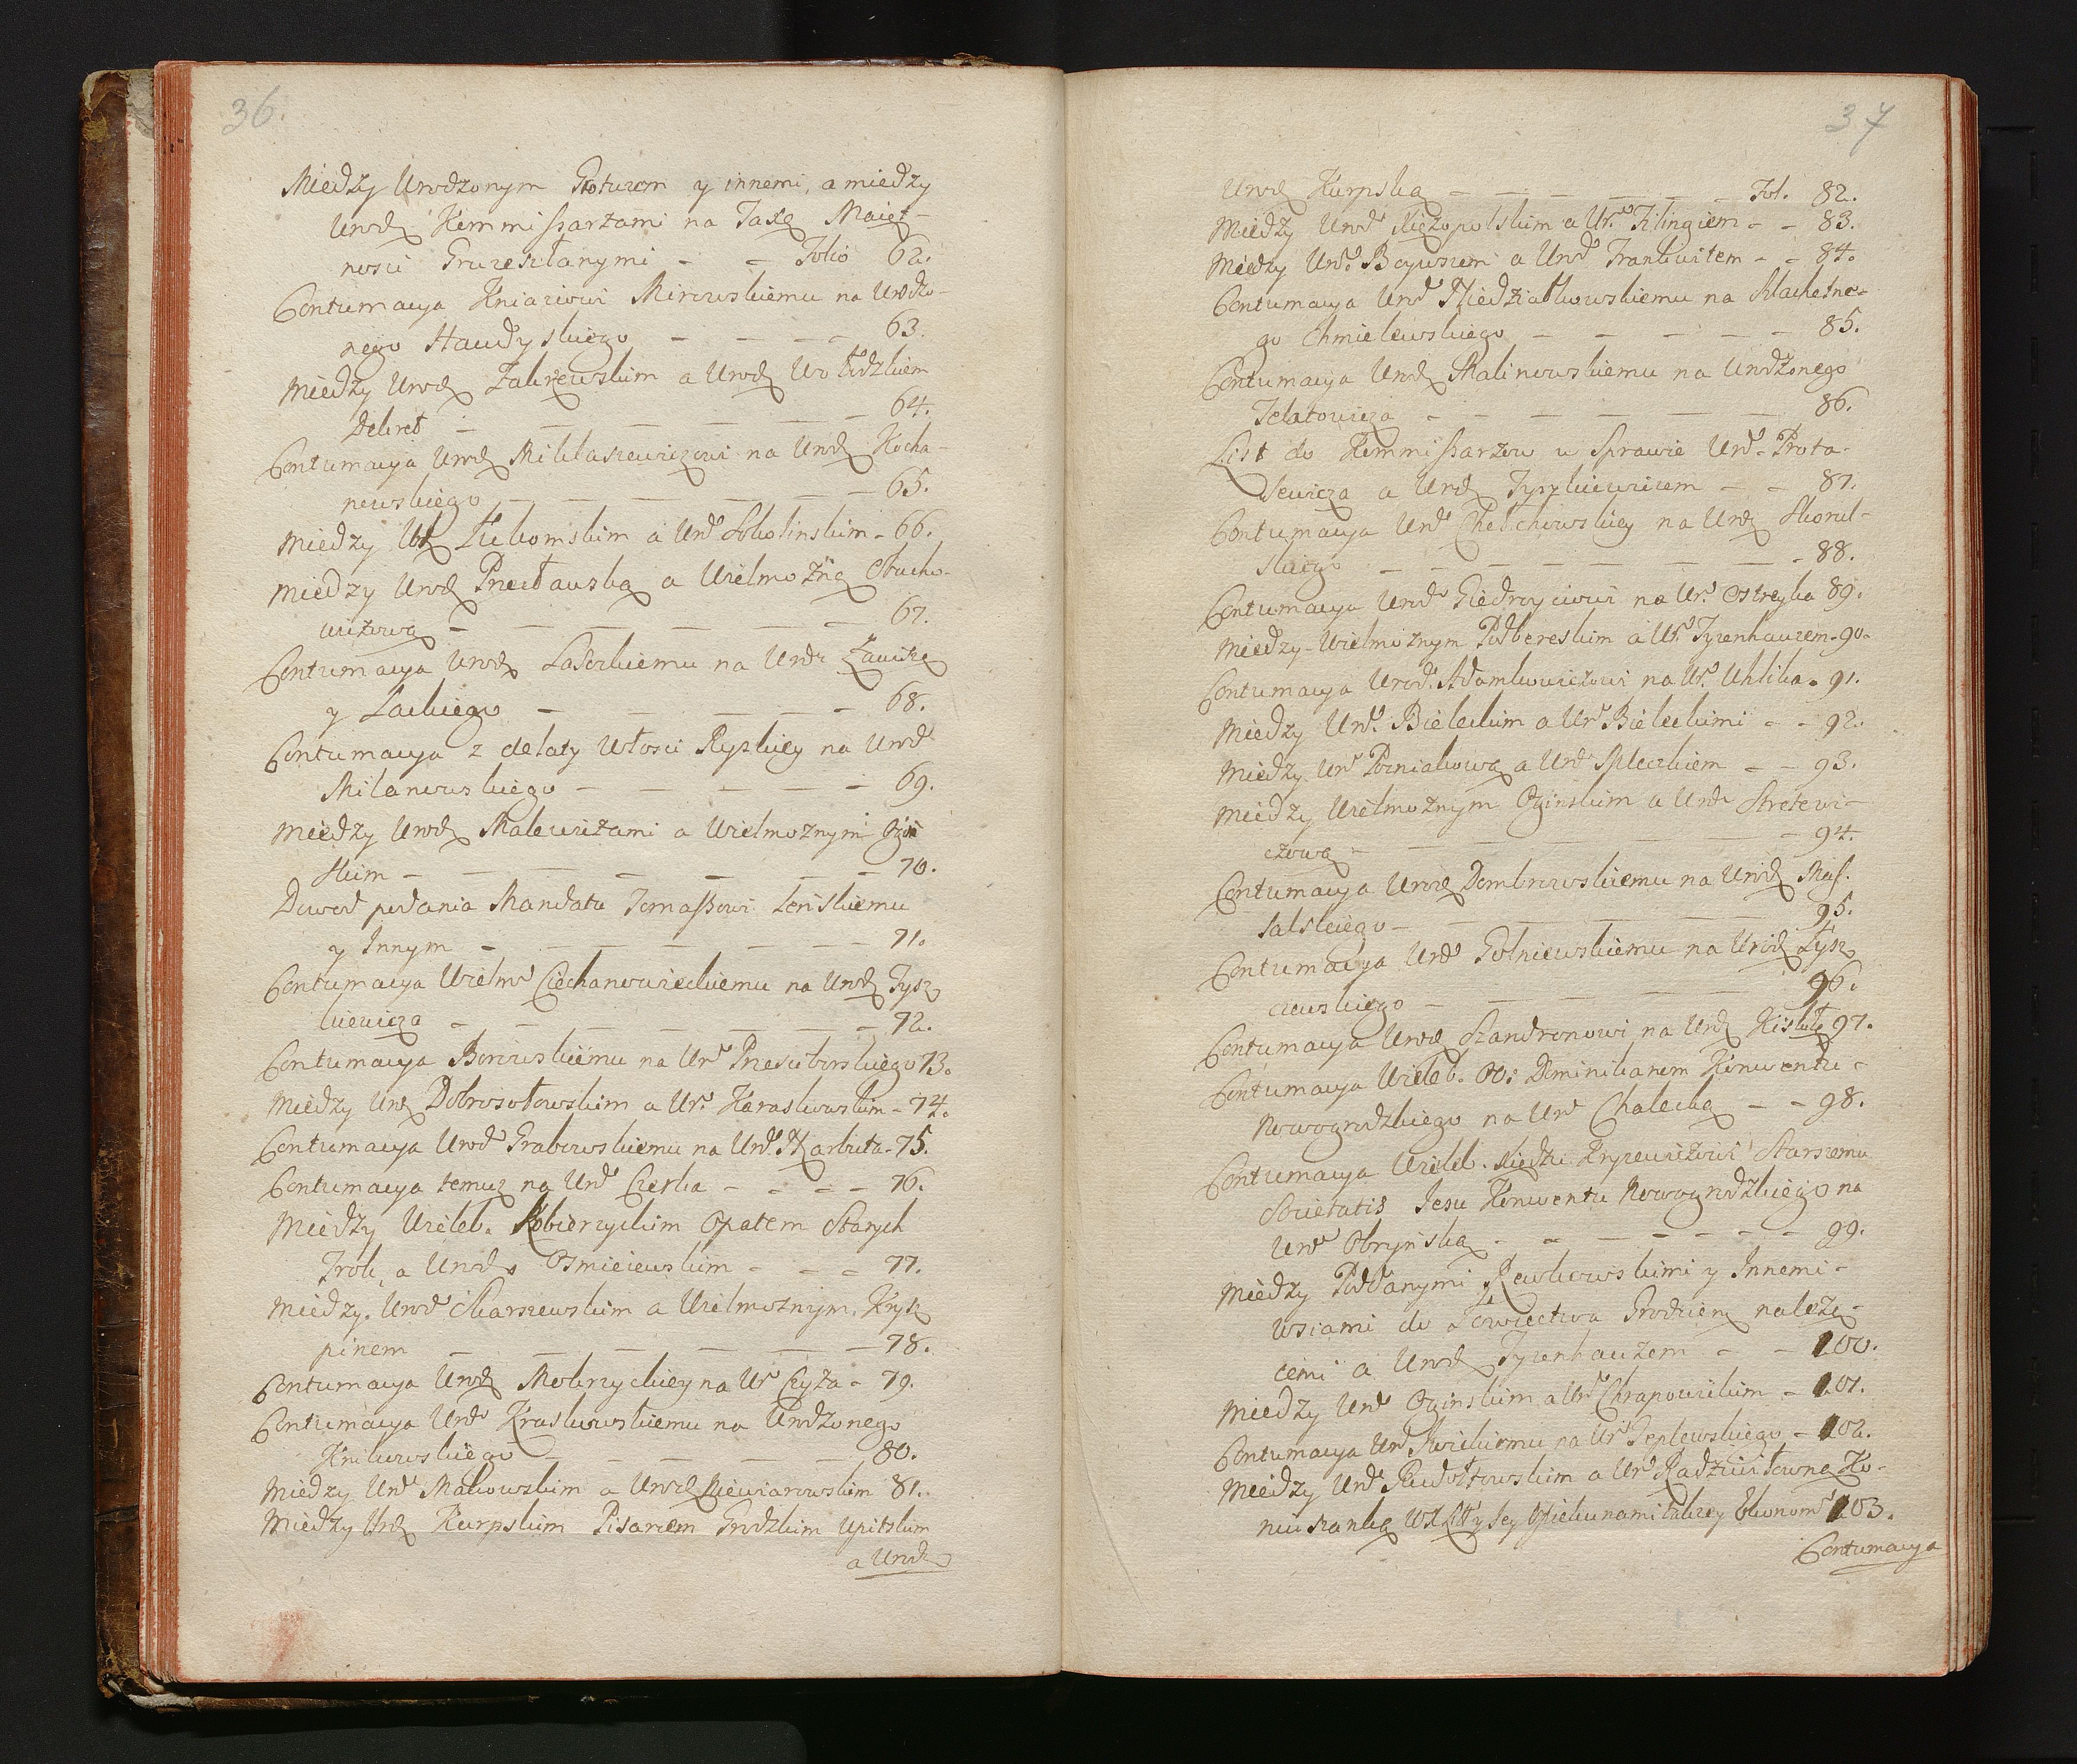 36.
Między Urodzonym Roturem y innemi, a między
Urodz Kommissarzami na Taxę Maięt-
nosci Gruzesztanymi - - Folio 62.
Contumacya Kniaziowi Mirowskiemu na Urodzo-
nego Haudyskiego - - - - 63.
Między Urodz Zakrzewskim a Urodz Wołodzkiem
Dekret - - - - - - 64.
Contumacya Urodz Mikłaszewiczowi na Urodz Kocha-
nowskiego - - - - - - 65.
Między Łukomskim a Urod Sokolinskim - 66.
Między Urodz Przecławską a Wielmożną Obucho-
wiczową - - - - - - 67.
Contumacya Urodz Laskiemu na Urodz Zawiszę
y Lackiego - - - - - 68.
Contumacya z delaty Włosci Ryzkiey na Urod
Milanowskiego - - - - - 69.
Między Urodz Malewiczami a Wielmoznym Ogin
skim - - - - - - - 70.
Dowod podania Mandatu Tomaszowi Leńskiemu
y Innym - - - - - - - 71.
Contumacya Wielm Ciechanowieckiemu na Urodz Tysz
kiewicza - - - - - - - 72.
Contumacya Borowskiemu na Ur Przesieborskiego 73.
Między Urodz Dobrosołowskim a Ur. Karaskowskim - 74.
Contumacya Urod Grabowskiemu na Urd. Narbuta - 75.
Contumacya temuz na Urd Czerka - - - - 76.
Między Wieleb. Kobierzyckim Opatem Starych
Trok, a Urodz Osmieiewskim - - - 77.
Między Urod Skarszewskim a Wielmoznym Krysz
pinem - - - - - - - 78.
Contumacya Urodz Mokrzyckiey na Ur Czyża - 79.
Contumacya Urod Kraskowskiemu na Urodzonego
Kulikowskiego - - - - - - 80.
Między Urd Makowskim a Urodz Niewiarowskim 81.
Między Urd Karpskim Pisarzem Grodzkim Upitskim
a Urodz
37
Urodz Karpską - - - - - - Fol. 82.
Między Urod Xięzopolskim a Ur. Kilingiem - - 83.
Między Urd. Boguszem a Urod Frankwitem - - 84.
Contumacya Urod Niedziałkowskiemu na Szlachetne-
go Chmielewskiego - - - - - 85.
Contumacya Urodz Malinowskiemu na Urodzonego
Jelatowicza - - - - - - 86.
List do Kommissarzow w Sprawie Urd. Prota-
sewicza a Urodz Tyszkiewiczem - - 87.
Contumacya Urd Chelchowskiey na Urodz Skorul-
skiego - - - - - - - 88.
Contumacya Urod Giedroyciowi na Ur. Ostreyka 89.
Między Wielmoznym Podbereskim a Ur. Tyzenhauzem - 90.
Contumacya Urod. Adamkowiczowi na Ur. Uklika - 91.
Między Urd. Bieleckim a Ur Bieleckimi - - 92.
Między Ur Pozniakową a Urd Spleczkiem - - 93.
Między Wielmoznym Oginskim a Urodz Stretowi-
czową - - - - - - - 94.
Contumacya Urodz Dombrowskiemu na Urodz Mas.
salskiego - - - - - - 95.
Contumacya Urd Golniewskiemu na Urodz Łysz
czewskiego - - - - - 96.
Contumacya Urodz Szandronowi na Urodz Kisielą 97.
Contumacya Wieleb. OO: Dominikanom Konwentu -
Nowogrodzkiego na Urd Chalecką - - 98.
Contumacya Wieleb. Xiędzu Krycewiczowi Starszemu
Societatis Jesu Konwentu Nowogrodzkiego na
Urd Obryńską - - - - - - - 99.
Między Poddanymi Rewkowskimi y Innemi -
wsiami do Łowiectwa Grodzien należą-
cemi a Urodz Tyzenhauzem - - 100.
Między Urd Oginskim a Urd Chrapowickim - 101.
Contumacya Urd Kwickiemu na Ur Teplewskiego - 102.
Między Urd Rudołtowskim a Ur Radziwiłowną Ko-
niuszanką W X Litt y Jey Opiekunami tudziey Ekonom 103.
Contumacya